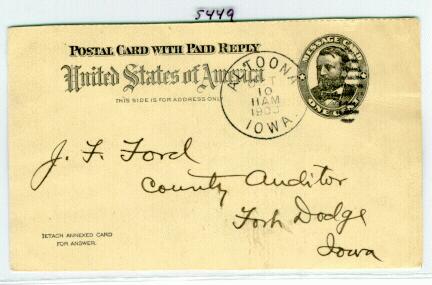 5449
POSTAL CARD WITH PAID REPLY
United States of America
THIS SIDE IS FOR ADDRESS ONLY
ALTOONA
OCT
10
11AM
IOWA.
MESSAGE CARD
ONE CENT
J. F. Ford
County Auditor
Fort Dodge
Iowa
DETACH ANNEXED CARD
FOR ANSWER.